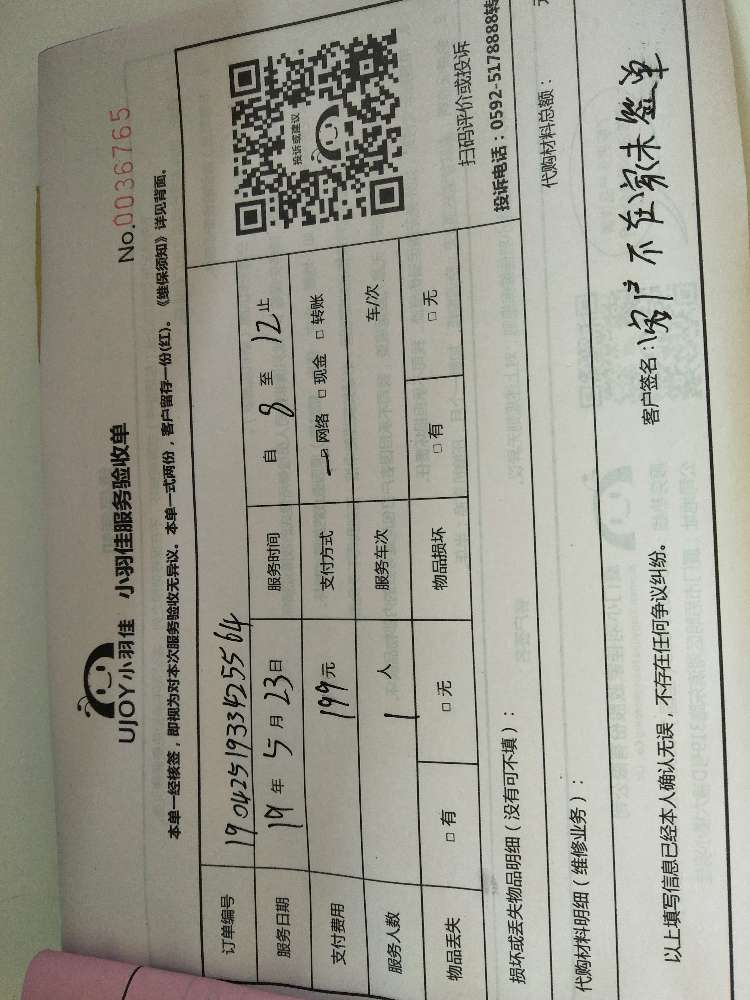 UJOY小羽佳 小羽佳服务验收单
No.0036765
本单一经核签，即视为对本次服务验收无异议。本单一式两份，客户留存一份(红)。《维保须知》详见背面。
订单编号 1904251933425564
服务日期 19年5月23日 服务时间 自 8 至 12 止
支付费用 199元 支付方式 □网络 □现金 □转账
服务人数 1 人 服务车次 车/次
物品丢失 □有 □无 物品损坏 □有 □无
损坏或丢失物品明细（没有可不填）：
投诉或建议
扫码评价或投诉
投诉电话：0592-5178888转
代购材料明细（维修业务）： 代购材料总额：
以上填写信息已经本人确认无误，不存在任何争议纠纷。 客户签名：客户不在家未签单